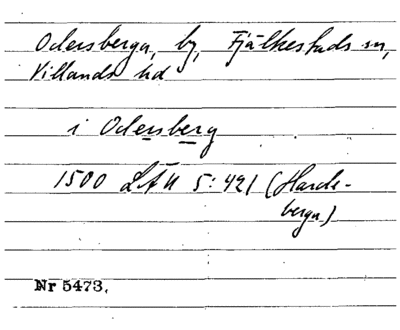 Odersberga, by, Fjälkestads sn,
Villands hd
i Odersberg
1500 LÄU 5:421 (Hards-
berga)
Nr 5473.